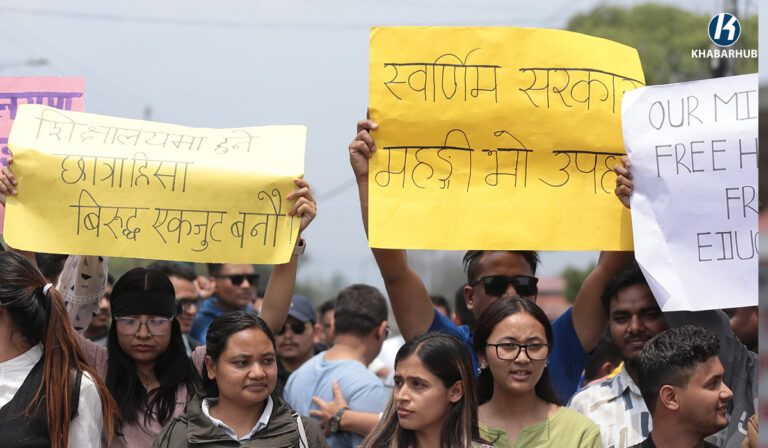 KHABARHUB
शिक्षालयमा हुने
छात्राहिंसा
बिरुद्ध एकजुट बनौं!
स्वर्णिम सरकार
महङ्गी भो उपहार
OUR
FREE